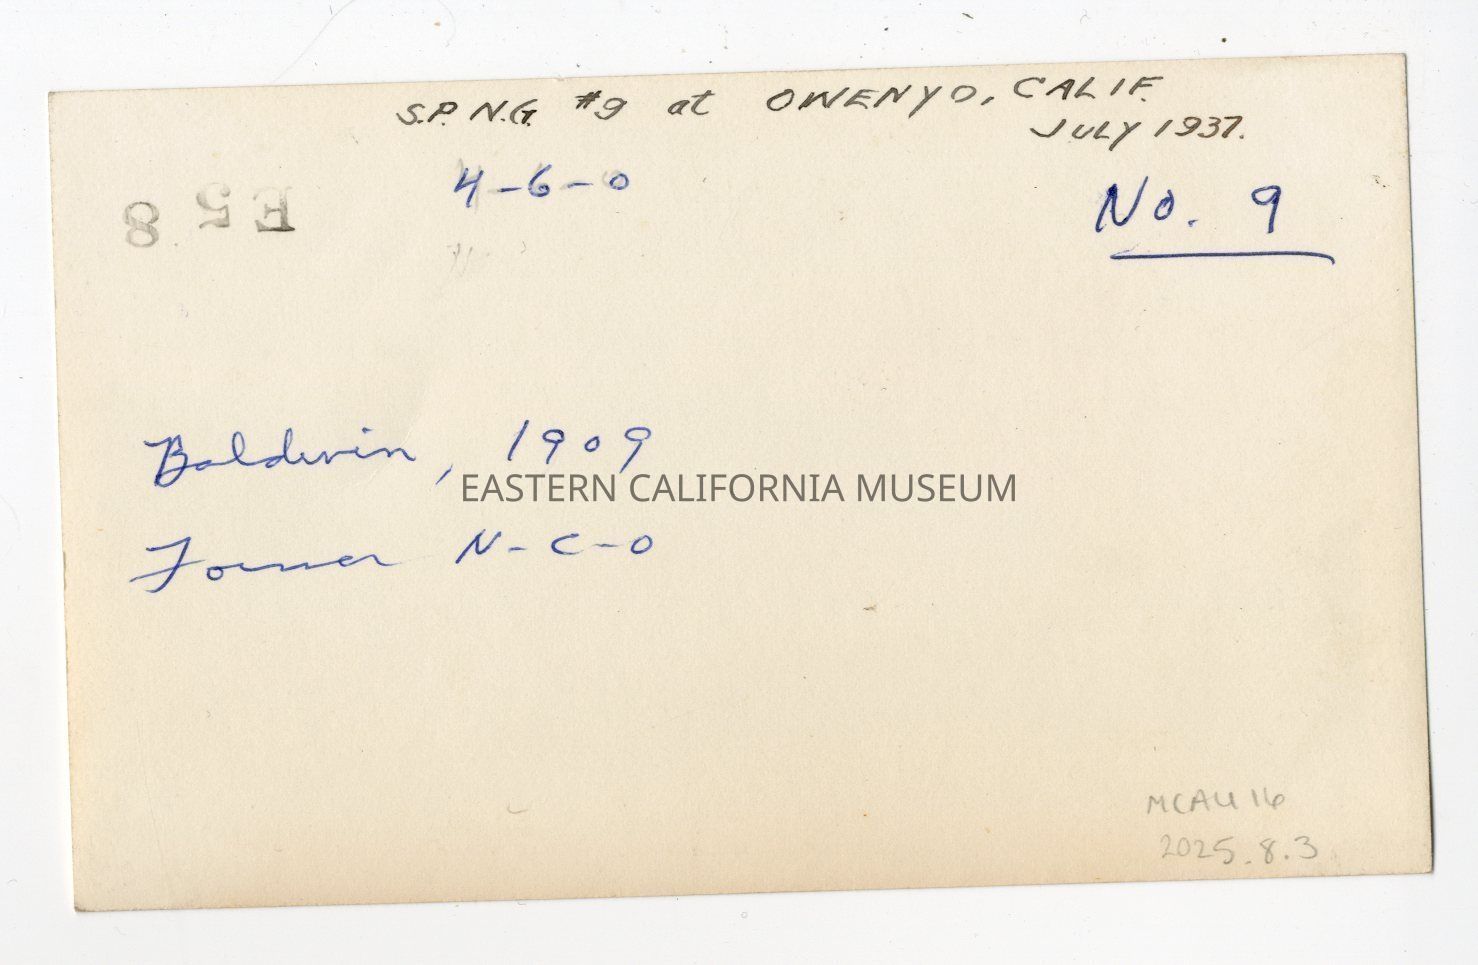 S.P. N.G. #9 at OWENYO, CALIF.
JULY 1937.
4-6-0
No. 9
E58
Baldwin, 1909
Former N-C-O
EASTERN CALIFORNIA MUSEUM
MCAU 16
2025.8.3